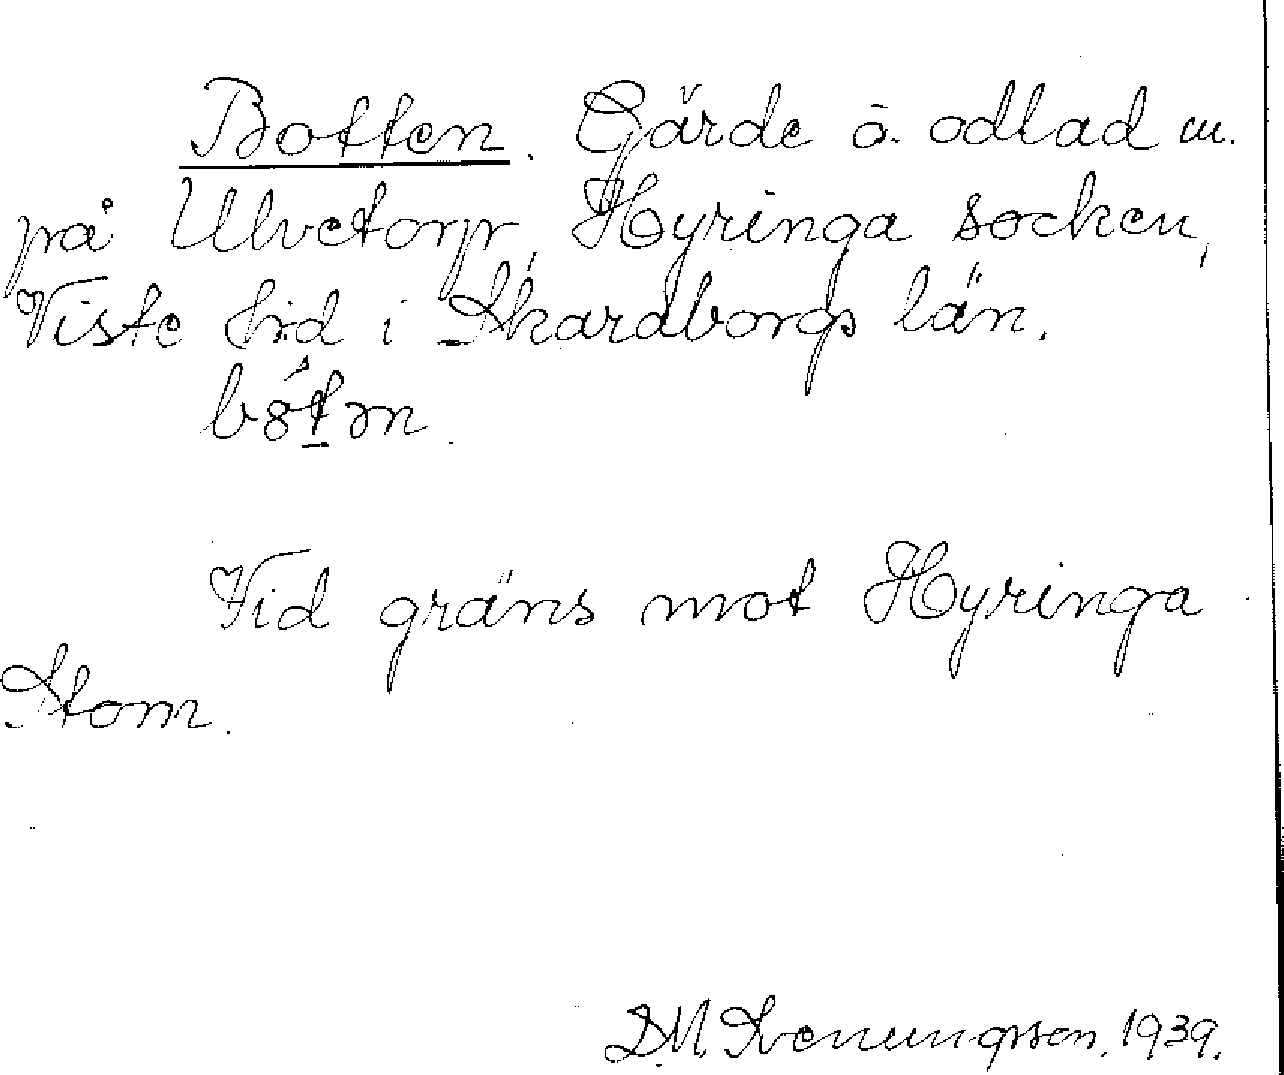 Botten. Gärde å. odlad m.
på Ulvetorp, Hyringa socken,
Viste hrd i Skaraborgs län.
Vid gräns mot Hyringa
Stom.
1939.